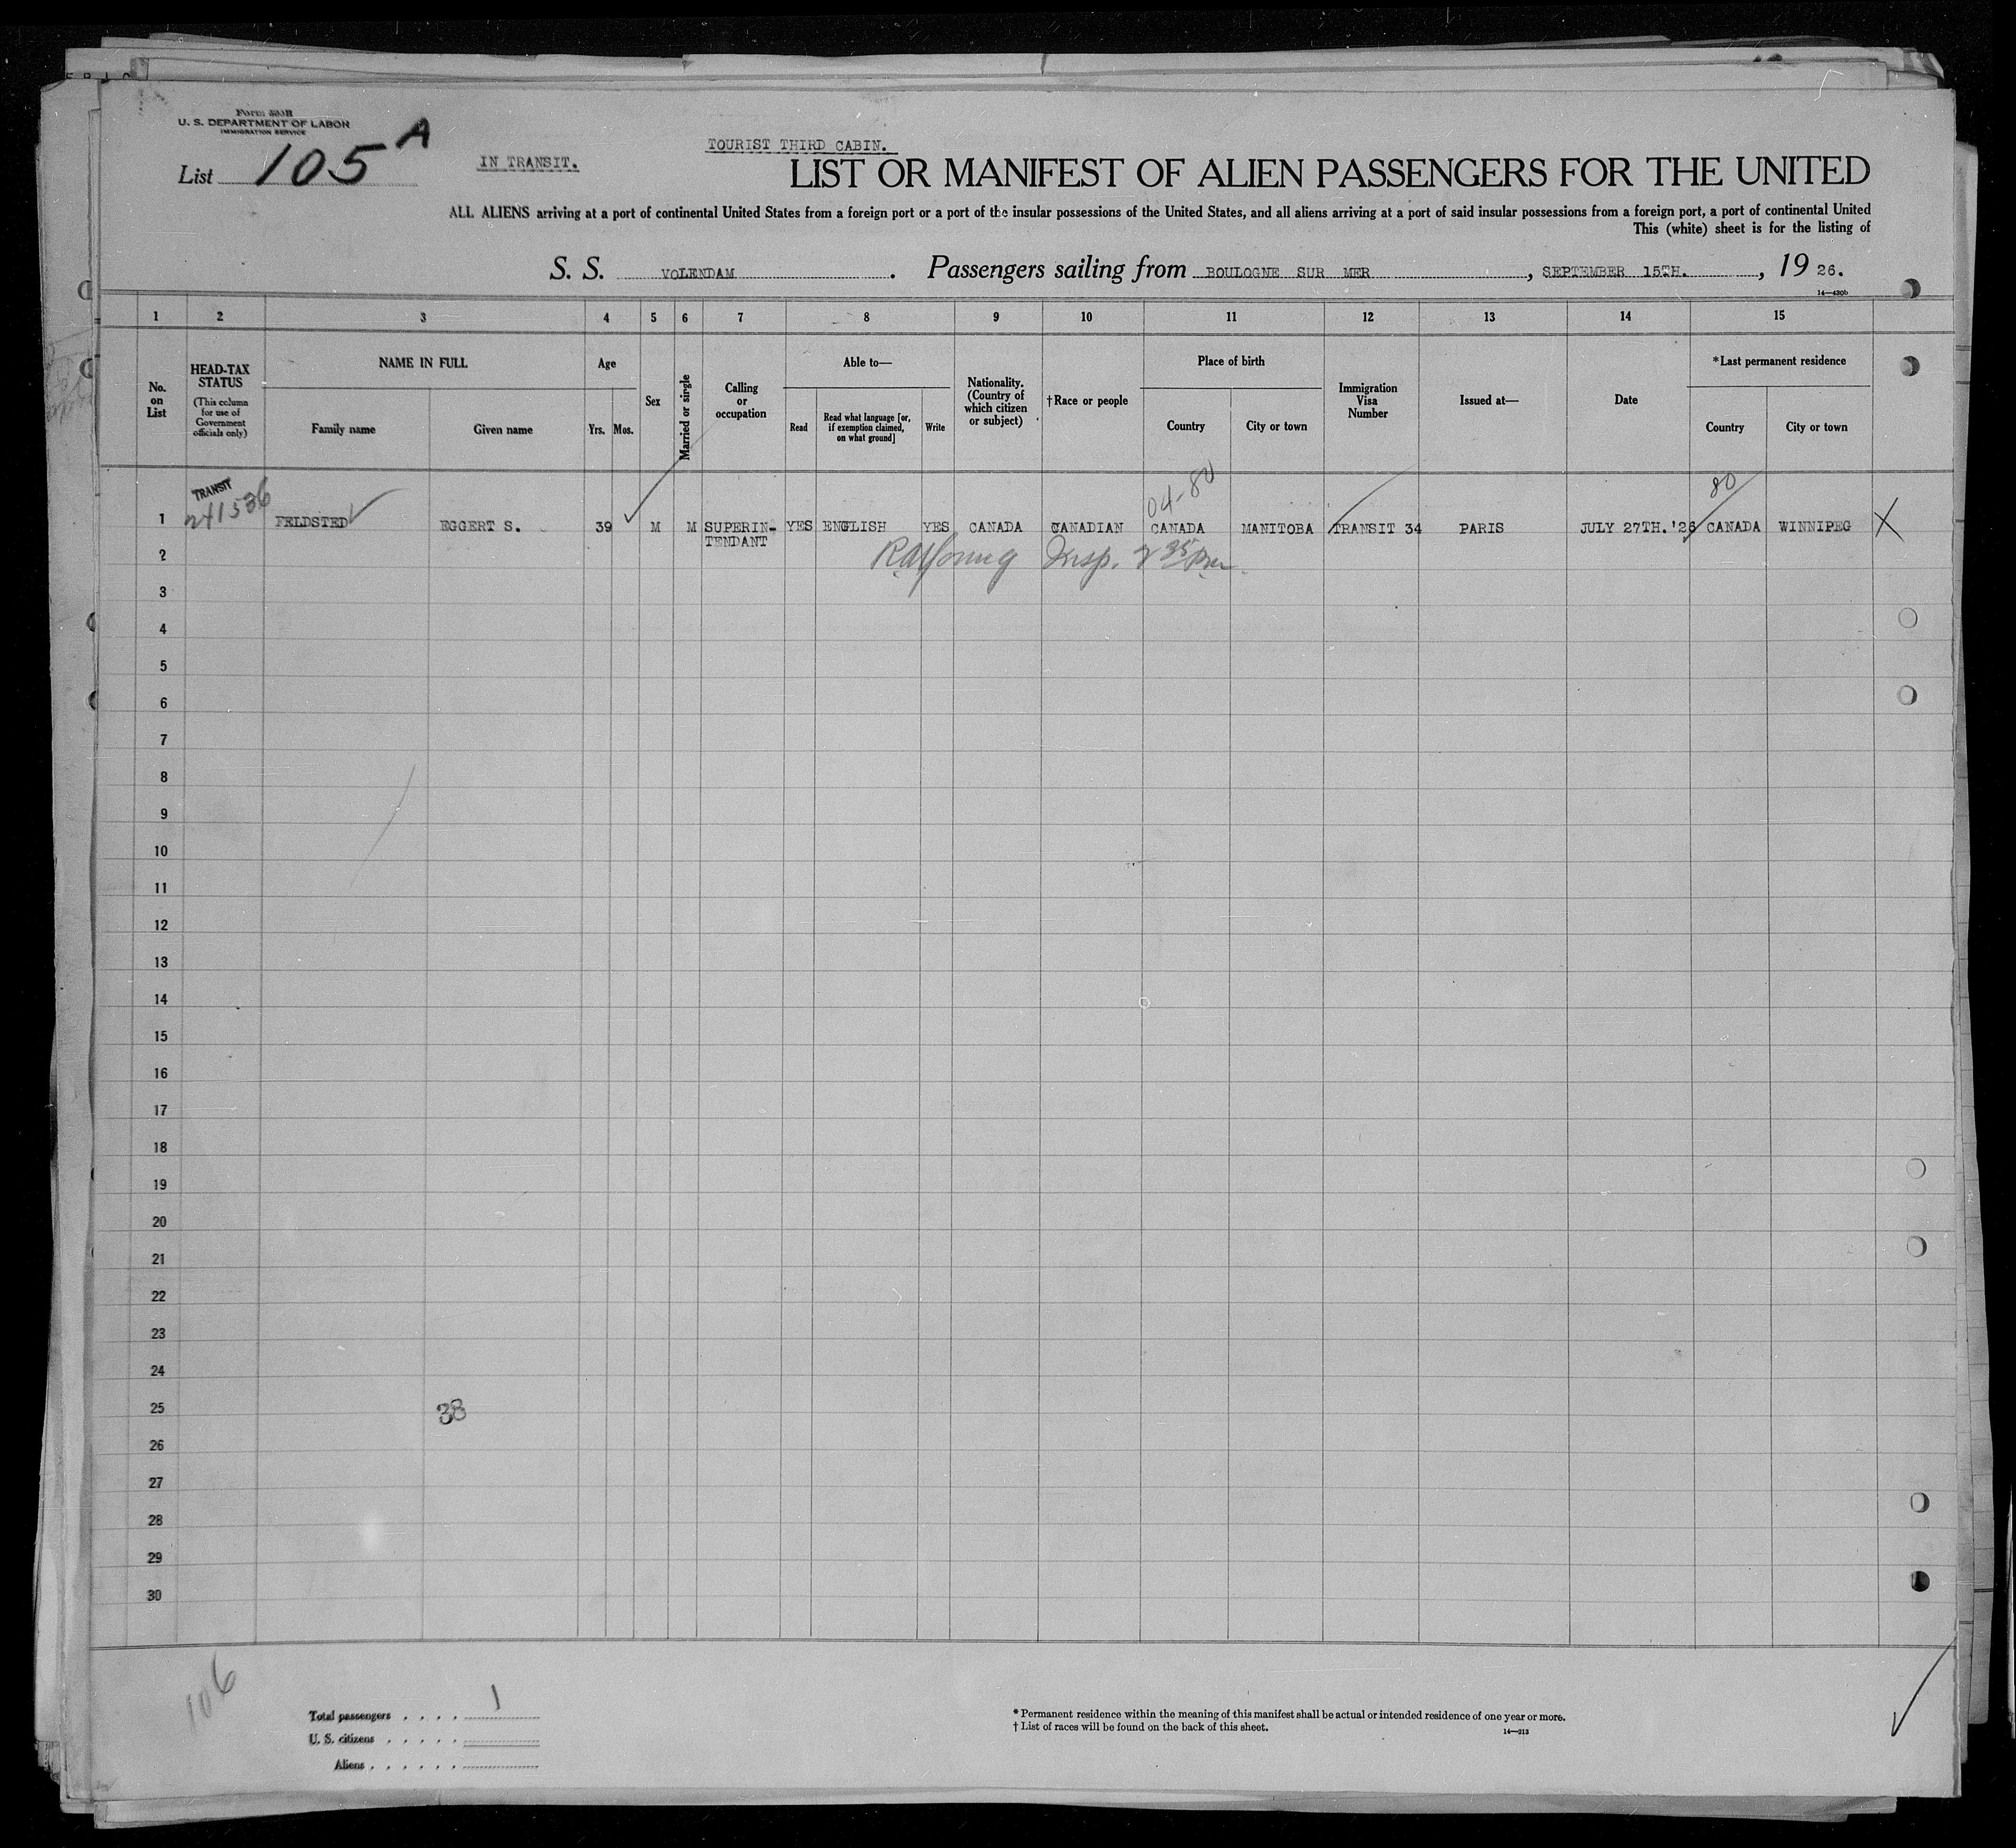 Form 500B
U. S. DEPARTMENT OF LABOR
IMMIGRATION SERVICE
List 105 A
IN TRANSIT.
TOURIST THIRD CABIN.
LIST OR MANIFEST OF ALIEN PASSENGERS FOR THE UNITED
ALL ALIENS arriving at a port of continental United States from a foreign port or a port of the insular possessions of the United States, and all aliens arriving at a port of said insular possessions from a foreign port, a port of continental United
This (white) sheet is for the listing of
S. S. VOLENDAM. Passengers sailing from BOULOGNE SUR MER, SEPTEMBER 15TH., 1926.
14—430b
1 2 3 4 5 6 7 8 9 10 11 12 13 14 15
No. on List
HEAD-TAX STATUS
(This column for use of Government officials only)
NAME IN FULL
Family name
Given name
Age
Yrs. Mos.
Sex
Married or single
Calling or occupation
Able to—
Read
Read what language [or, if exemption claimed, on what ground]
Write
Nationality. (Country of which citizen or subject)
†Race or people
Place of birth
Country
City or town
Immigration Visa Number
Issued at—
Date
*Last permanent residence
Country
City or town
TRANSIT
241536
04-80
80
1 FELDSTED EGGERT S. 39 M M SUPERIN- YES ENGLISH YES CANADA CANADIAN CANADA MANITOBA TRANSIT 34 PARIS JULY 27TH.'26 CANADA WINNIPEG X
TENDANT
2 Insp.
3
4
5
6
7
8
9
10
11
12
13
14
15
16
17
18
19
20
21
22
23
24
25 38
26
27
28
29
30
106
Total passengers . . . . 1
U. S. citizens . . . . .
Aliens . . . . . .
* Permanent residence within the meaning of this manifest shall be actual or intended residence of one year or more.
† List of races will be found on the back of this sheet.
14—213